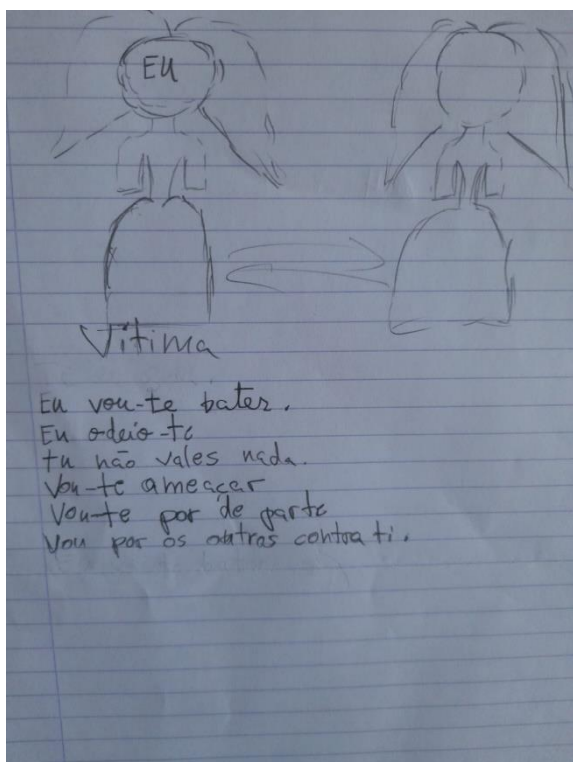 EU
Vitima
Eu vou-te bater.
Eu odeio-te
tu não vales nada.
Vou-te ameaçar
Vou-te por de parte
Vou por os outros contra ti.